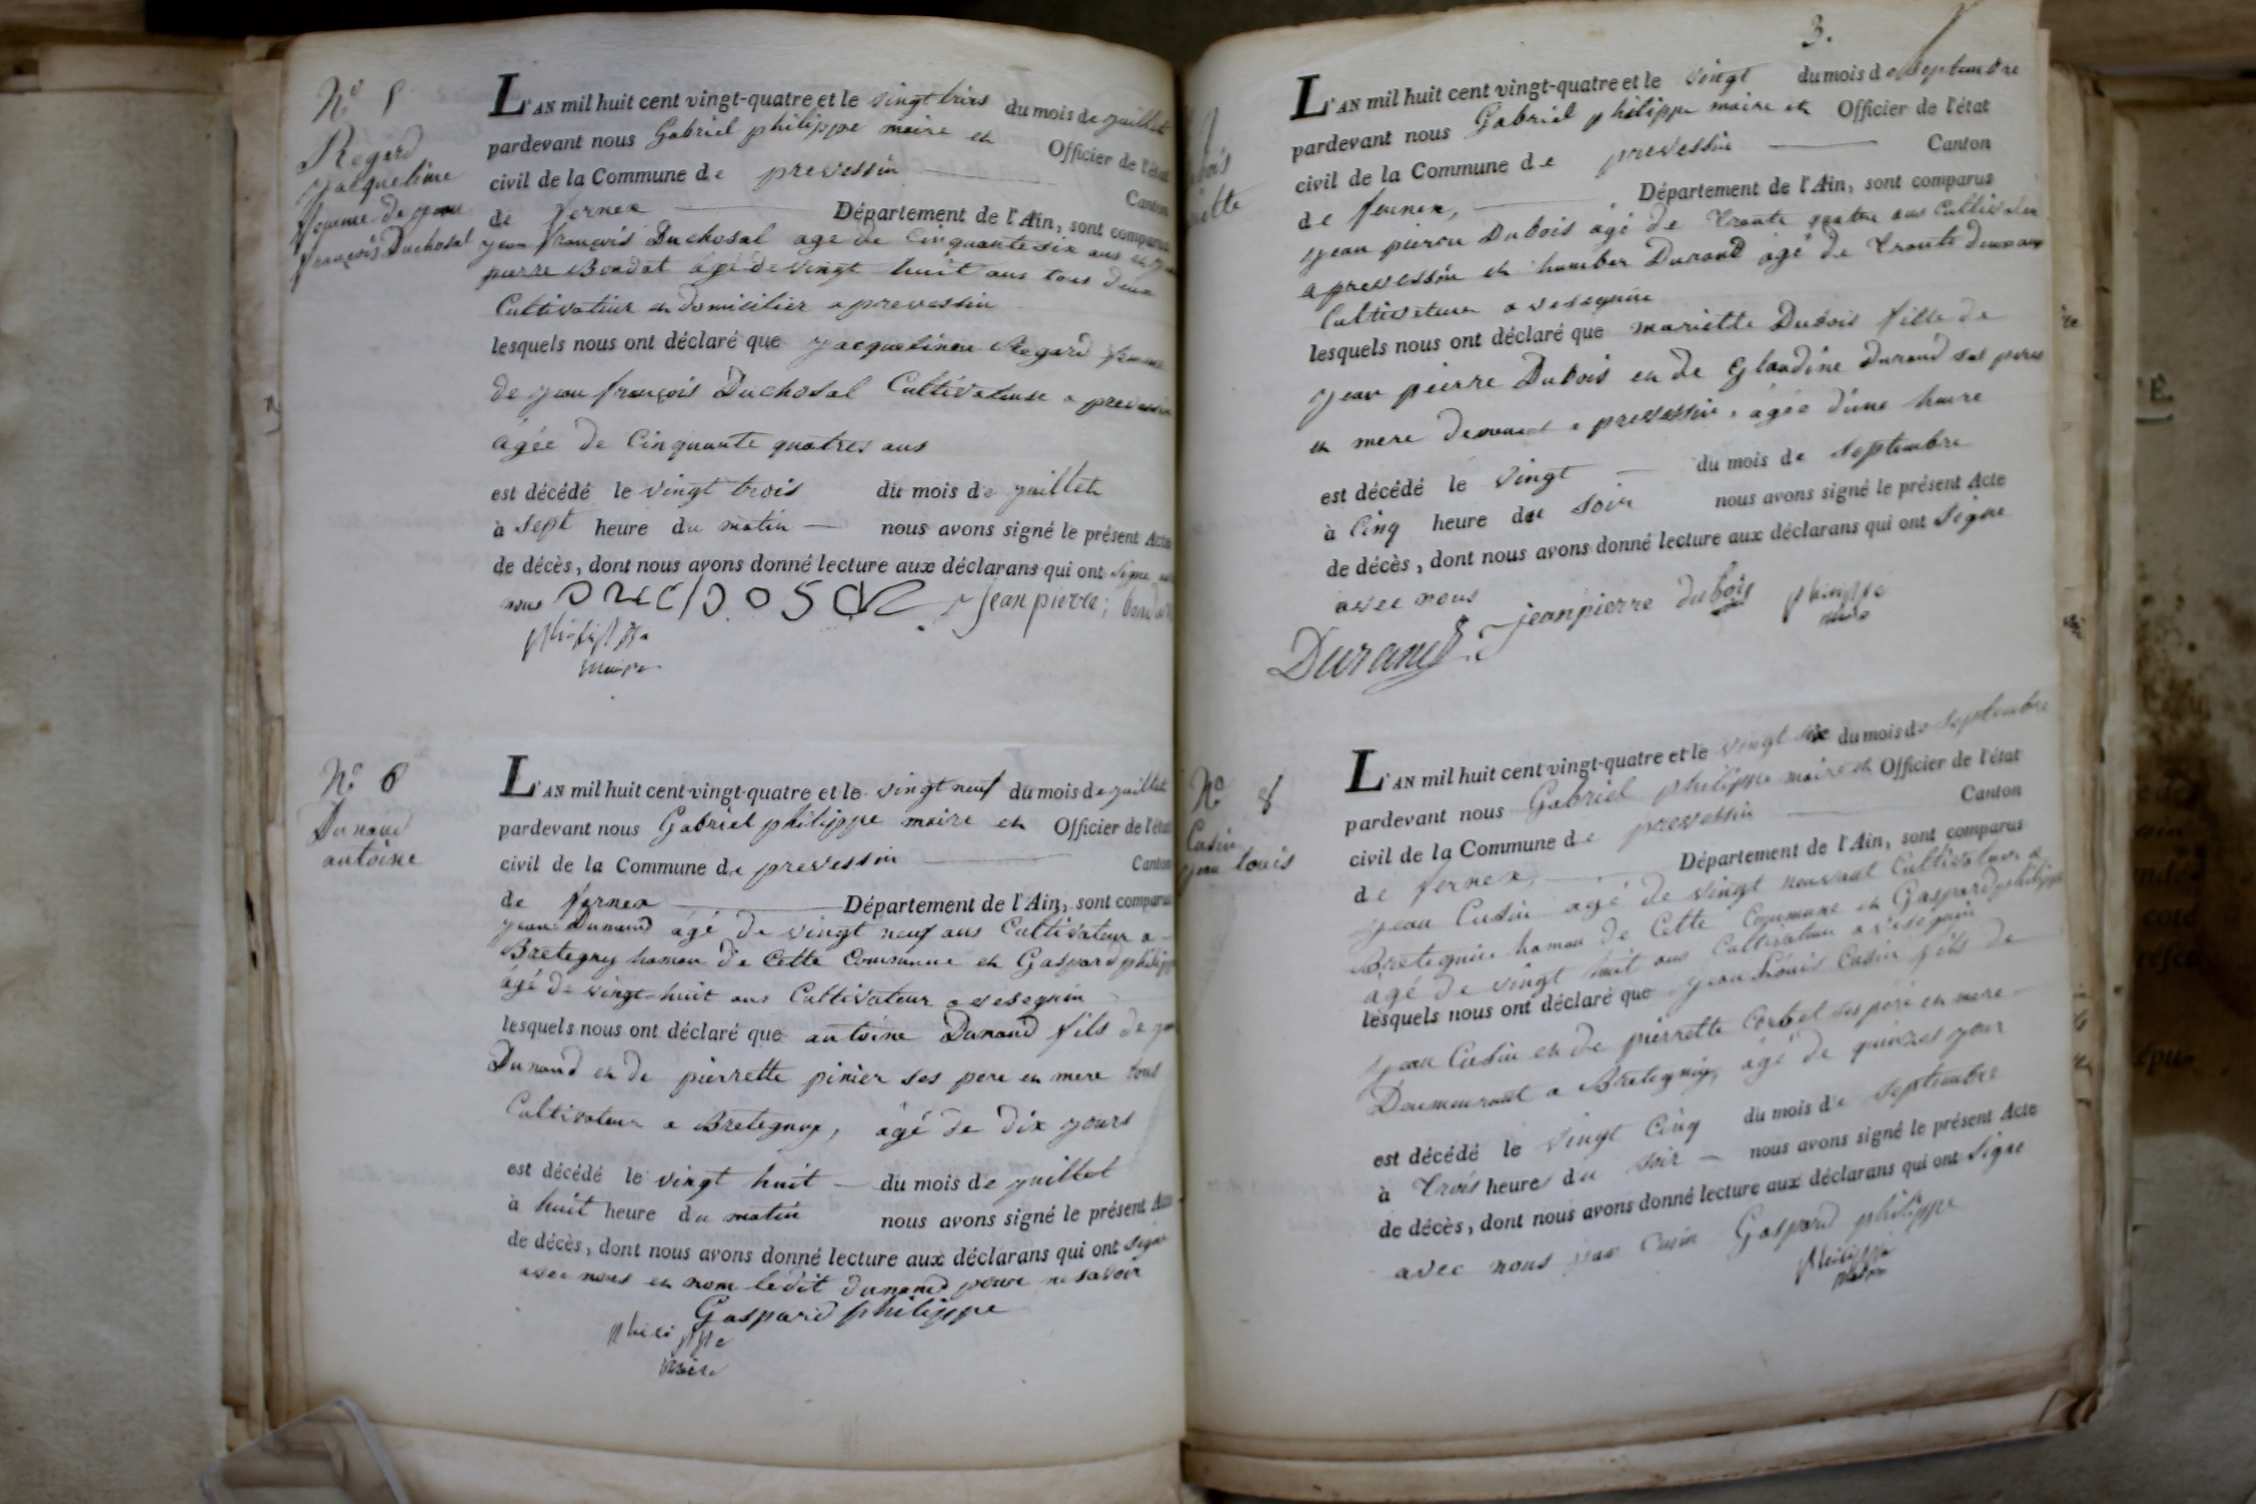 N° 5
Regard
jacqueline
femme de jean
françois Duchosal
L'AN mil huit cent vingt-quatre et le vingt trois du mois de juillet
pardevant nous Gabriel philippe maire et Officier de l'état
civil de la Commune de prevessin Canton
de fernex Département de l'Ain, sont comparus
jean françois Duchosal age de Cinquante six ans et
pierre Bondat âgé de vingt huit ans tous deux
Cultivateur et domicilier a prevessin
lesquels nous ont déclaré que jacqueline Regard femme
de jean françois Duchosal Cultivateuse a prevessin
âgée de Cinquante quatres ans
est décédé le vingt trois du mois de juillet
à sept heure du matin nous avons signé le présent Acte
de décès, dont nous avons donné lecture aux déclarans qui ont signe
nous jean pierre
philippe
maire
N° 6
Dunand
antoine
L'AN mil huit cent vingt-quatre et le vingt neuf du mois de juillet
pardevant nous Gabriel philippe maire et Officier de l'état
civil de la Commune de prevessin Canton
de fernex Département de l'Ain, sont comparus
jean Dunand âgé de vingt neuf ans Cultivateur a
Bretegny hamau de Cette Commune et Gaspard philippe
âgé de vingt-huit ans Cultivateur a vesegnin
lesquels nous ont déclaré que antoine Dunand fils de
Dunand et de pierrette pinier ses pere et mere tous
Cultivateur a Bretegny, âgé de dix jours
est décédé le vingt huit du mois de juillet
à huit heure du matin nous avons signé le présent Acte
de décès, dont nous avons donné lecture aux déclarans qui ont signe
avec nous et nom ledit dunand pour ne savoir
Gaspard philippe
philippe
maire
3.
L'AN mil huit cent vingt-quatre et le vingt du mois de septembre
pardevant nous Gabriel philippe maire et Officier de l'état
civil de la Commune de prevessin Canton
de fernex, Département de l'Ain, sont comparus
jean pierre Dubois âgé de trante quatre ans Cultivateur
a prevessin et humber Durand âgé de trante deux ans
Cultivateur a vesegnin
lesquels nous ont déclaré que mariette Dubois fille de
jean pierre Dubois et de Glaudine Durand ses peres
et mere a prevessin, âgée d'une heure
est décédé le vingt du mois de septembre
à Cinq heure du soir nous avons signé le présent Acte
de décès, dont nous avons donné lecture aux déclarans qui ont signe
avec nous
Durand jean pierre dubois philippe
maire
N° 8
Casin
jean louis
L'AN mil huit cent vingt-quatre et le vingt six du mois de septembre
pardevant nous Gabriel philippe maire et Officier de l'état
civil de la Commune de prevessin Canton
de fernex, Département de l'Ain, sont comparus
jean Casin agé de vingt Cultivateur a
hamau de Cette Commune et Gaspard philippe
âgé de vingt huit ans Cultivateur a vesegnin
lesquels nous ont déclaré que jean Louis Casin fils de
jean Casin et de pierrette Corbet ses pere et mere
a Bretegny, âgé de quinzes jour
est décédé le vingt Cinq du mois de septembre
à trois heures du soir nous avons signé le présent Acte
de décès, dont nous avons donné lecture aux déclarans qui ont signe
avec nous Gaspard philippe
philippe
maire